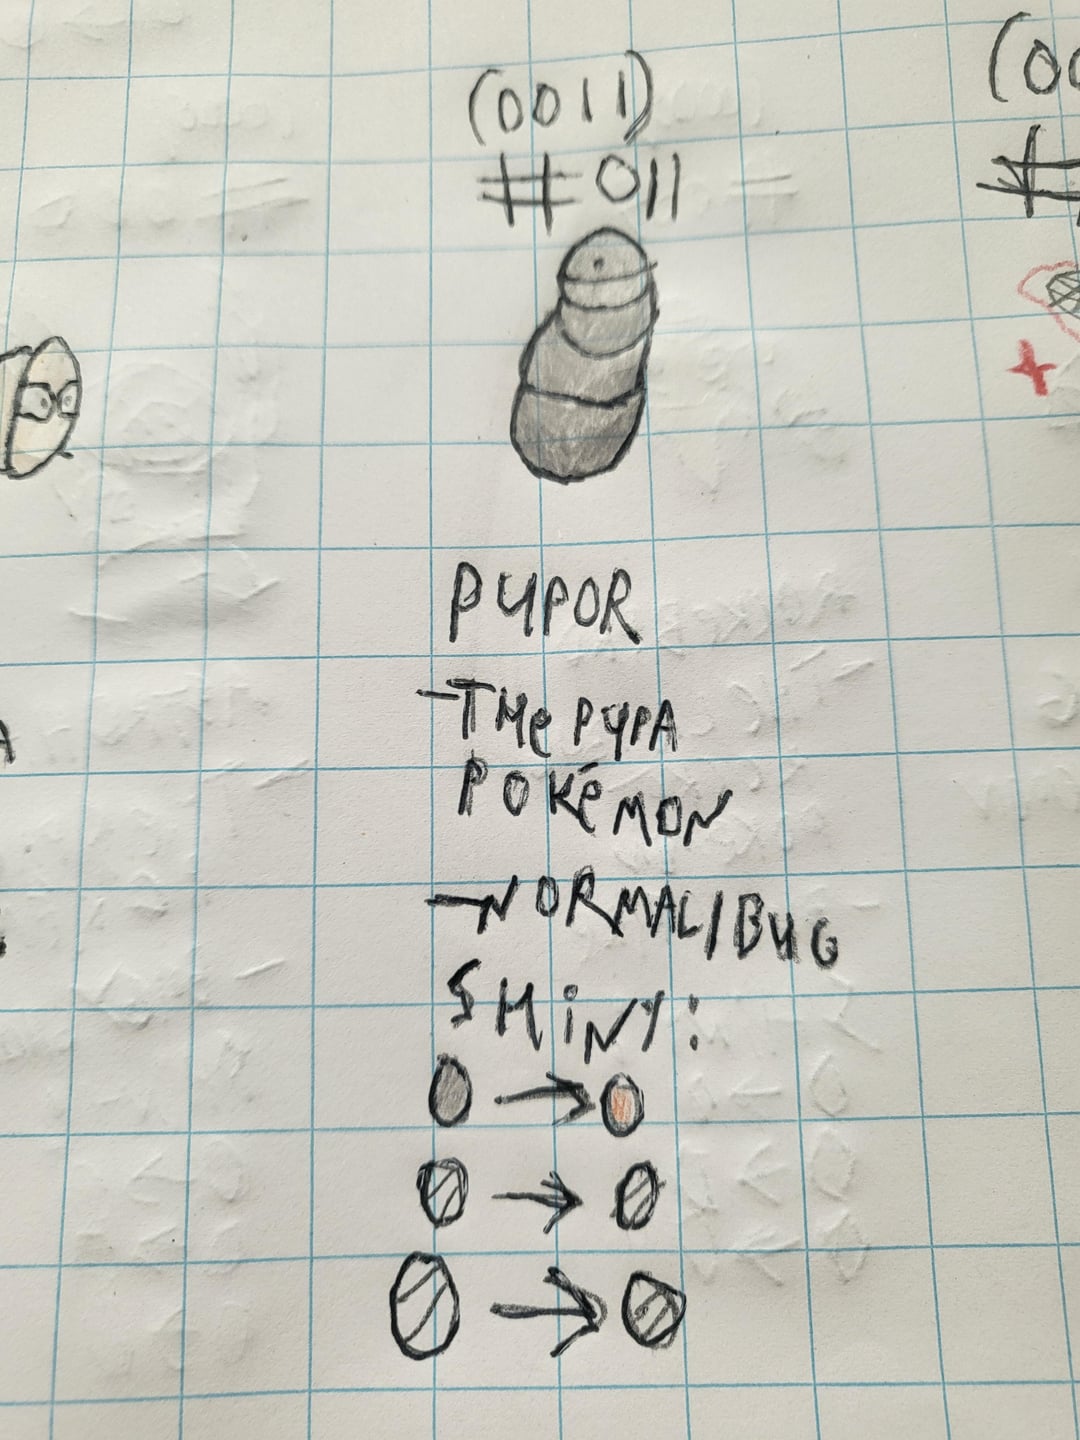 (0011)
#011
PYPOR
-THe PYPA
POKéMON
-NORMAL/BUG
SHiNY: